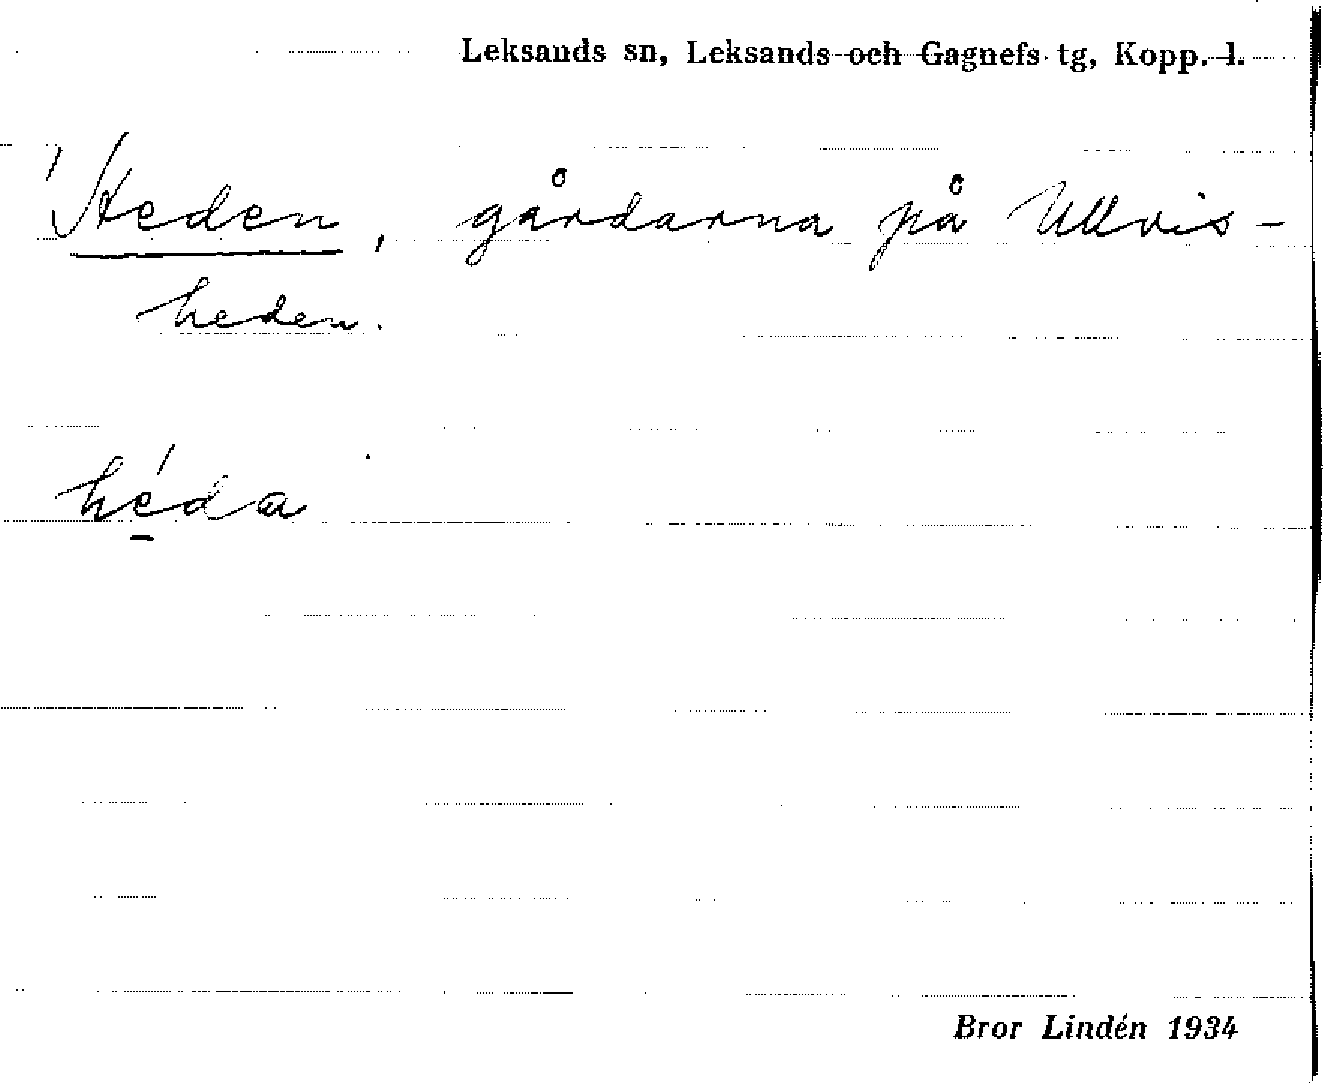 Leksands sn, Leksands och Gagnefs tg, Kopp. l.
Heden, gårdarna på Ullvis-
heden.
héda
Bror Lindén 1934